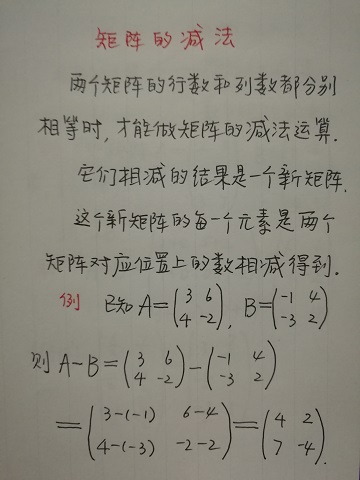 矩阵的减法
两个矩阵的行数和列数都分别
相等时,才能做矩阵的减法运算.
它们相减的结果是一个新矩阵.
这个新矩阵的每一个元素是两个
矩阵对应位置上的数相减得到.
例 已知 A=(3 6; 4 -2), B=(-1 4; -3 2)
则 A-B=(3 6; 4 -2)-(-1 4; -3 2)
=(3-(-1) 6-4; 4-(-3) -2-2)=(4 2; 7 -4).